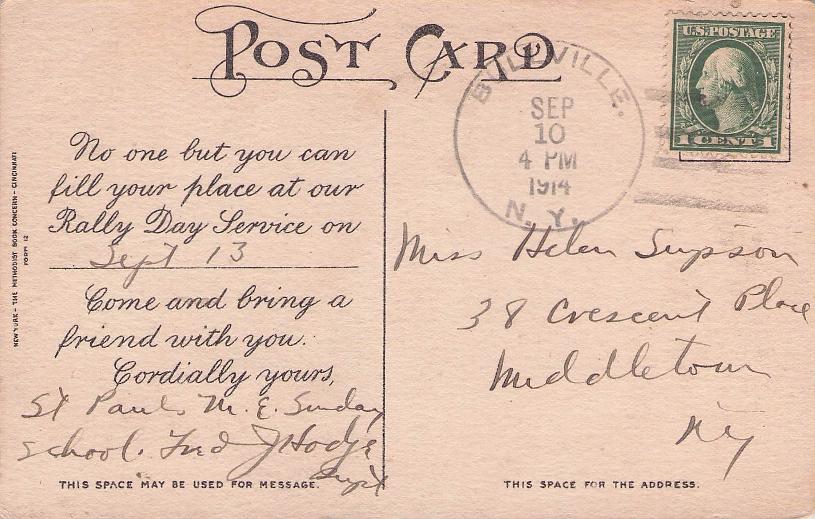 POST CARD
U.S. POSTAGE
1 CENT 1
BULLVILLE.
SEP
10
4 PM
1914
N. Y.
No one but you can
fill your place at our
Rally Day Service on
Sept 13
Come and bring a
friend with you.
Cordially yours,
St Pauls M. E. Sunday
School. Fred J Hodge
Supt
THIS SPACE MAY BE USED FOR MESSAGE.
NEW YORK - THE METHODIST BOOK CONCERN - CINCINNATI
FORM 12
Miss Helen
38 Crescent Place
Middletown
NY
THIS SPACE FOR THE ADDRESS.